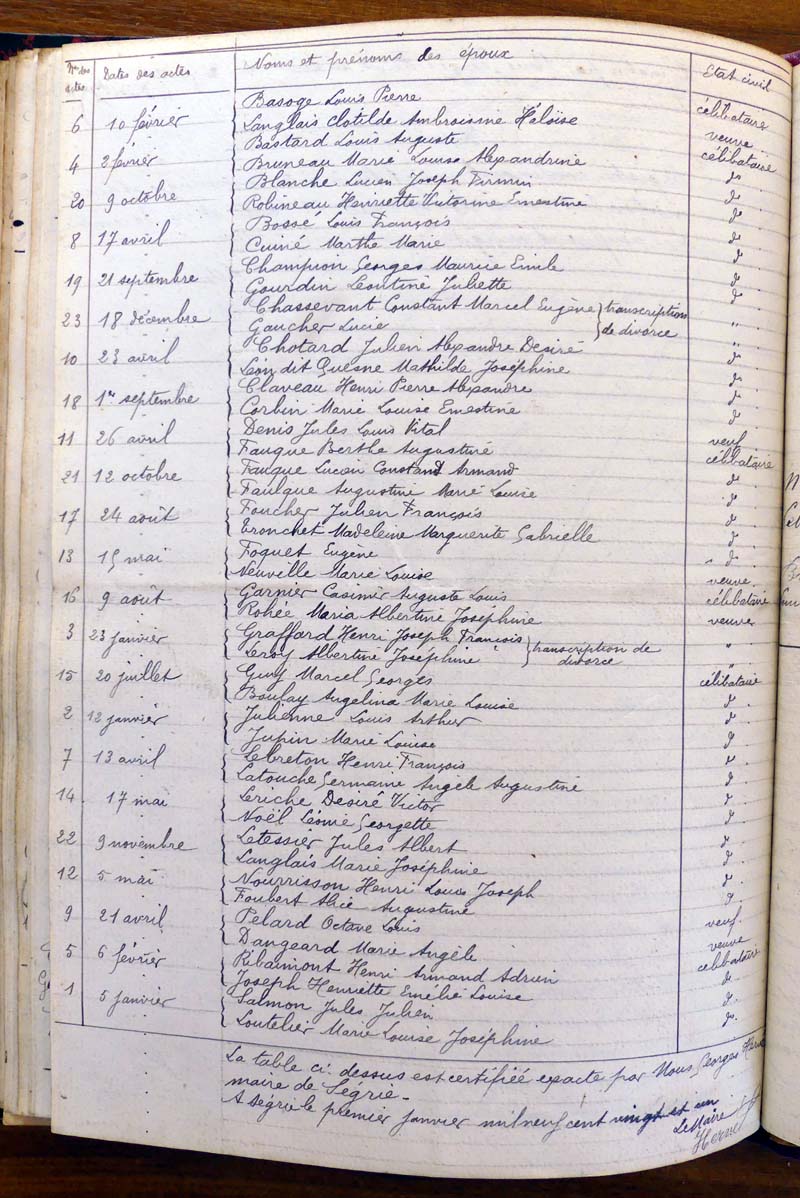 Nos des actes Dates des actes Noms et prénoms des époux Etat civil
Basoge Louis Pierre célibataire
6 10 février Langlais Clotilde Ambroisine Héloïse veuve
Bastard Louis Auguste célibataire
4 2 février Bruneau Marie Louise Alexandrine do
Blanche Lucien Joseph Firmin do
20 9 octobre Robineau Henriette Victorine Ernestine do
Bossé Louis François do
8 17 avril Cuiné Marthe Marie do
Champion Georges Maurice Emile do
19 21 septembre Gourdin Léontine Juliette do
Chassevant Constant Marcel Eugène } transcription "
23 18 décembre Gaucher Lucie } de divorce "
Chotard Julien Alexandre Desiré do
10 23 avril Léon dit Quesne Mathilde Joséphine do
Claveau Henri Pierre Alexandre do
18 1er septembre Corbin Marie Louise Ernestine do
Denis Jules Louis Vital veuf
11 26 avril Fauque Berthe Augustine célibataire
Faulque Lucien Constant Armand do
21 12 octobre Faulque Augustine Marie Louise do
Foucher Julien François do
17 24 août Tronchet Madeleine Marguerite Gabrielle do
Foguet Eugène do
13 15 mai Neuville Marie Louise veuve
Garnier Casimir Auguste Louis célibataire
16 9 août Rohée Maria Albertine Joséphine veuve
Graffard Henri Joseph François } transcription de "
3 23 janvier Leroy Albertine Joséphine } divorce "
Guy Marcel Georges célibataire
15 20 juillet Boulay Angelina Marie Louise do
Julienne Louis Arthur do
2 12 janvier Jupin Marie Louise do
Lebreton Henri François do
7 13 avril Latouche Germaine Angèle Augustine do
Leriche Desiré Victor do
14 17 mai Noël Léonie Georgette do
Letessier Jules Albert do
22 9 novembre Langlais Marie Joséphine do
Nourrisson Henri Louis Joseph do
12 5 mai Foubert Alice Augustine do
Pelard Octave Louis veuf
9 21 avril Dangeard Marie Angèle veuve
Ribaimont Henri Armand Adrien célibataire
5 6 février Joseph Henriette Emélie Louise do
Salmon Jules Julien do
1 5 janvier Loutelier Marie Louise Joséphine do
La table ci-dessus est certifiée exacte par Nous, Georges Hervé
maire de Ségrie.
A Ségrie le premier janvier mil neuf cent vingt et un
Le Maire
Hervé